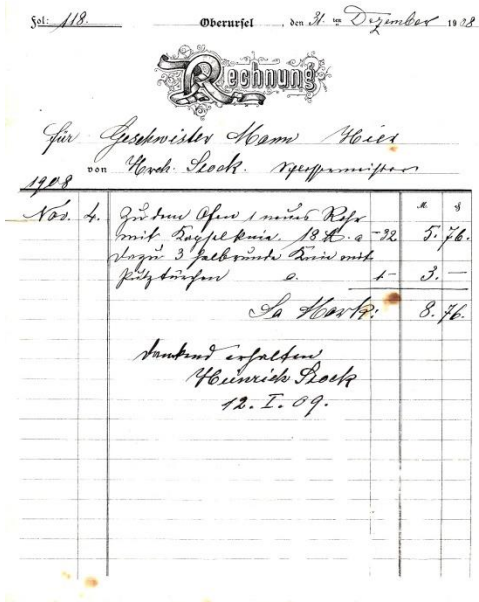 Fol: 118.
Oberursel, den 31. ten Dezember 1908
Rechnung
für Geschwister Mann Hier
von Hrch. Stock. Schlossermeister
1908
M ₰
Nov. 4. Zu dem Ofen 1 neues Rohr
mit Kapselknie. 18 ℔. a -32 5. 76.
dazu 3 halbrunde Knie mit
Putztürchen a. 1- 3. —
Sa Mark: 8. 76.
dankend erhalten
Heinrich Stock
12. I. 09.